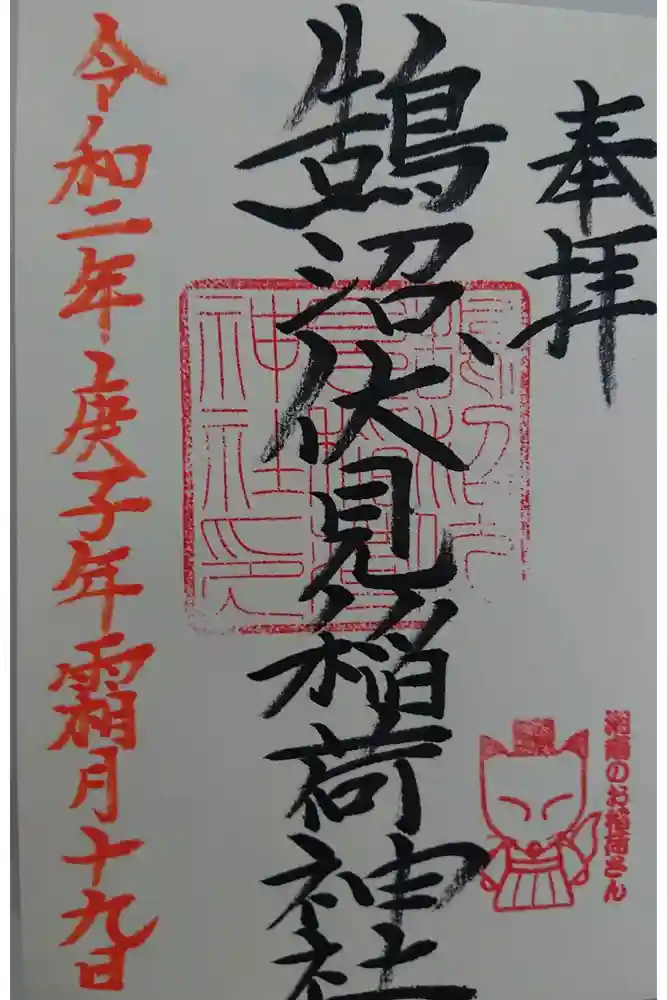 奉拝
鵠沼伏見稲荷神社
令和二年庚子年霜月十九日
湘南のお稲荷さん